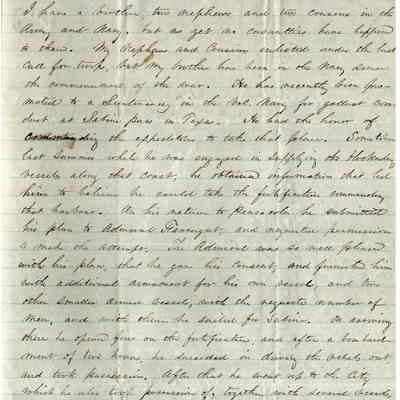 I have a brother, two nephews and two cousins in the
Army and Navy, but as yet no casualties have happened
to them. My Nephews and Cousins enlisted under the last
call for troops, but my brother has been in the Navy since
the commencement of the war. He has recently been pro-
moted to a Lieutenancy in the Vol. Navy for gallant con-
duct at Sabine Pass in Texas. He had the honor of
commanding the expedition to take that place. Sometime
last Summer while he was engaged in supplying the blockading
vessels along that coast, he obtained information that led
him to believe he could take the fortification commanding
that harbour. On his return to Pensacola he submitted
his plan to Admiral Farragut, and requested permission
to make the attempt. The Admiral was so well pleased
with his plan, that he gave his consent, and furnished him
with additional armament for his own vessel, and two
other smaller armed vessels, with the requested number of
men, and with them he sailed for Sabine. On arriving
there he opened fire on the fortification, and after a bombard-
ment of two hours he succeeded in driving the rebels out
and took possession. After that he went up to the City
which he also took possession of, together with several vessels,